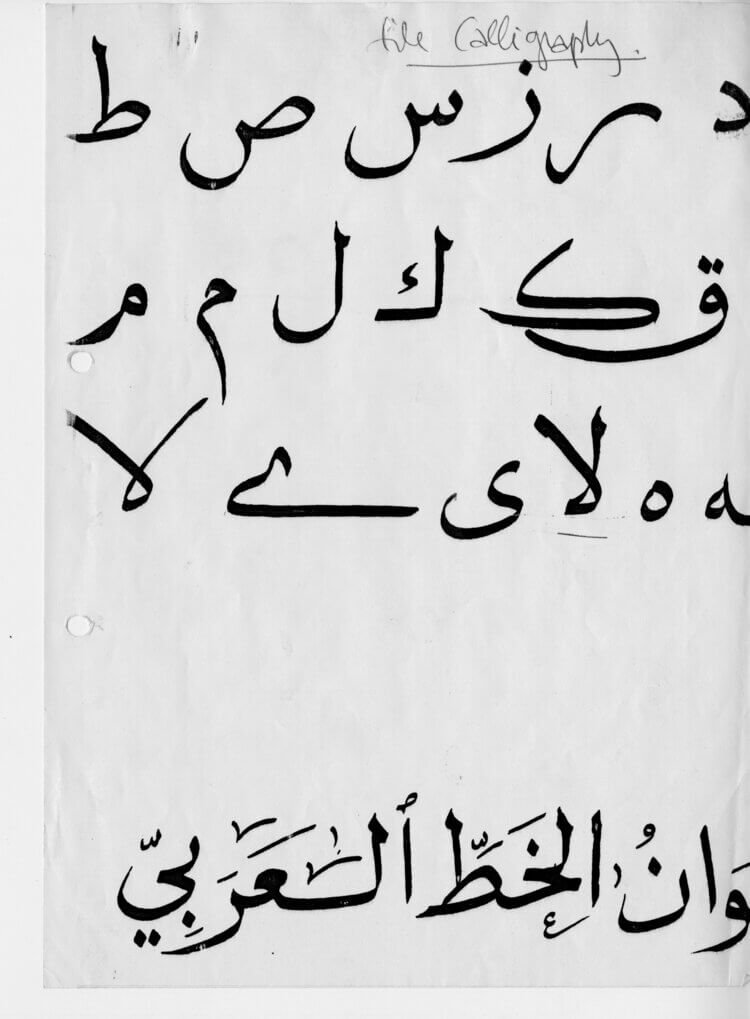 file Calligraphy.
د ر ز س ص ط
ق ک ك ل م م
ه ه لا ى ے لا
وَانُ الخَطِّ ٱلْعَرَبِيّ